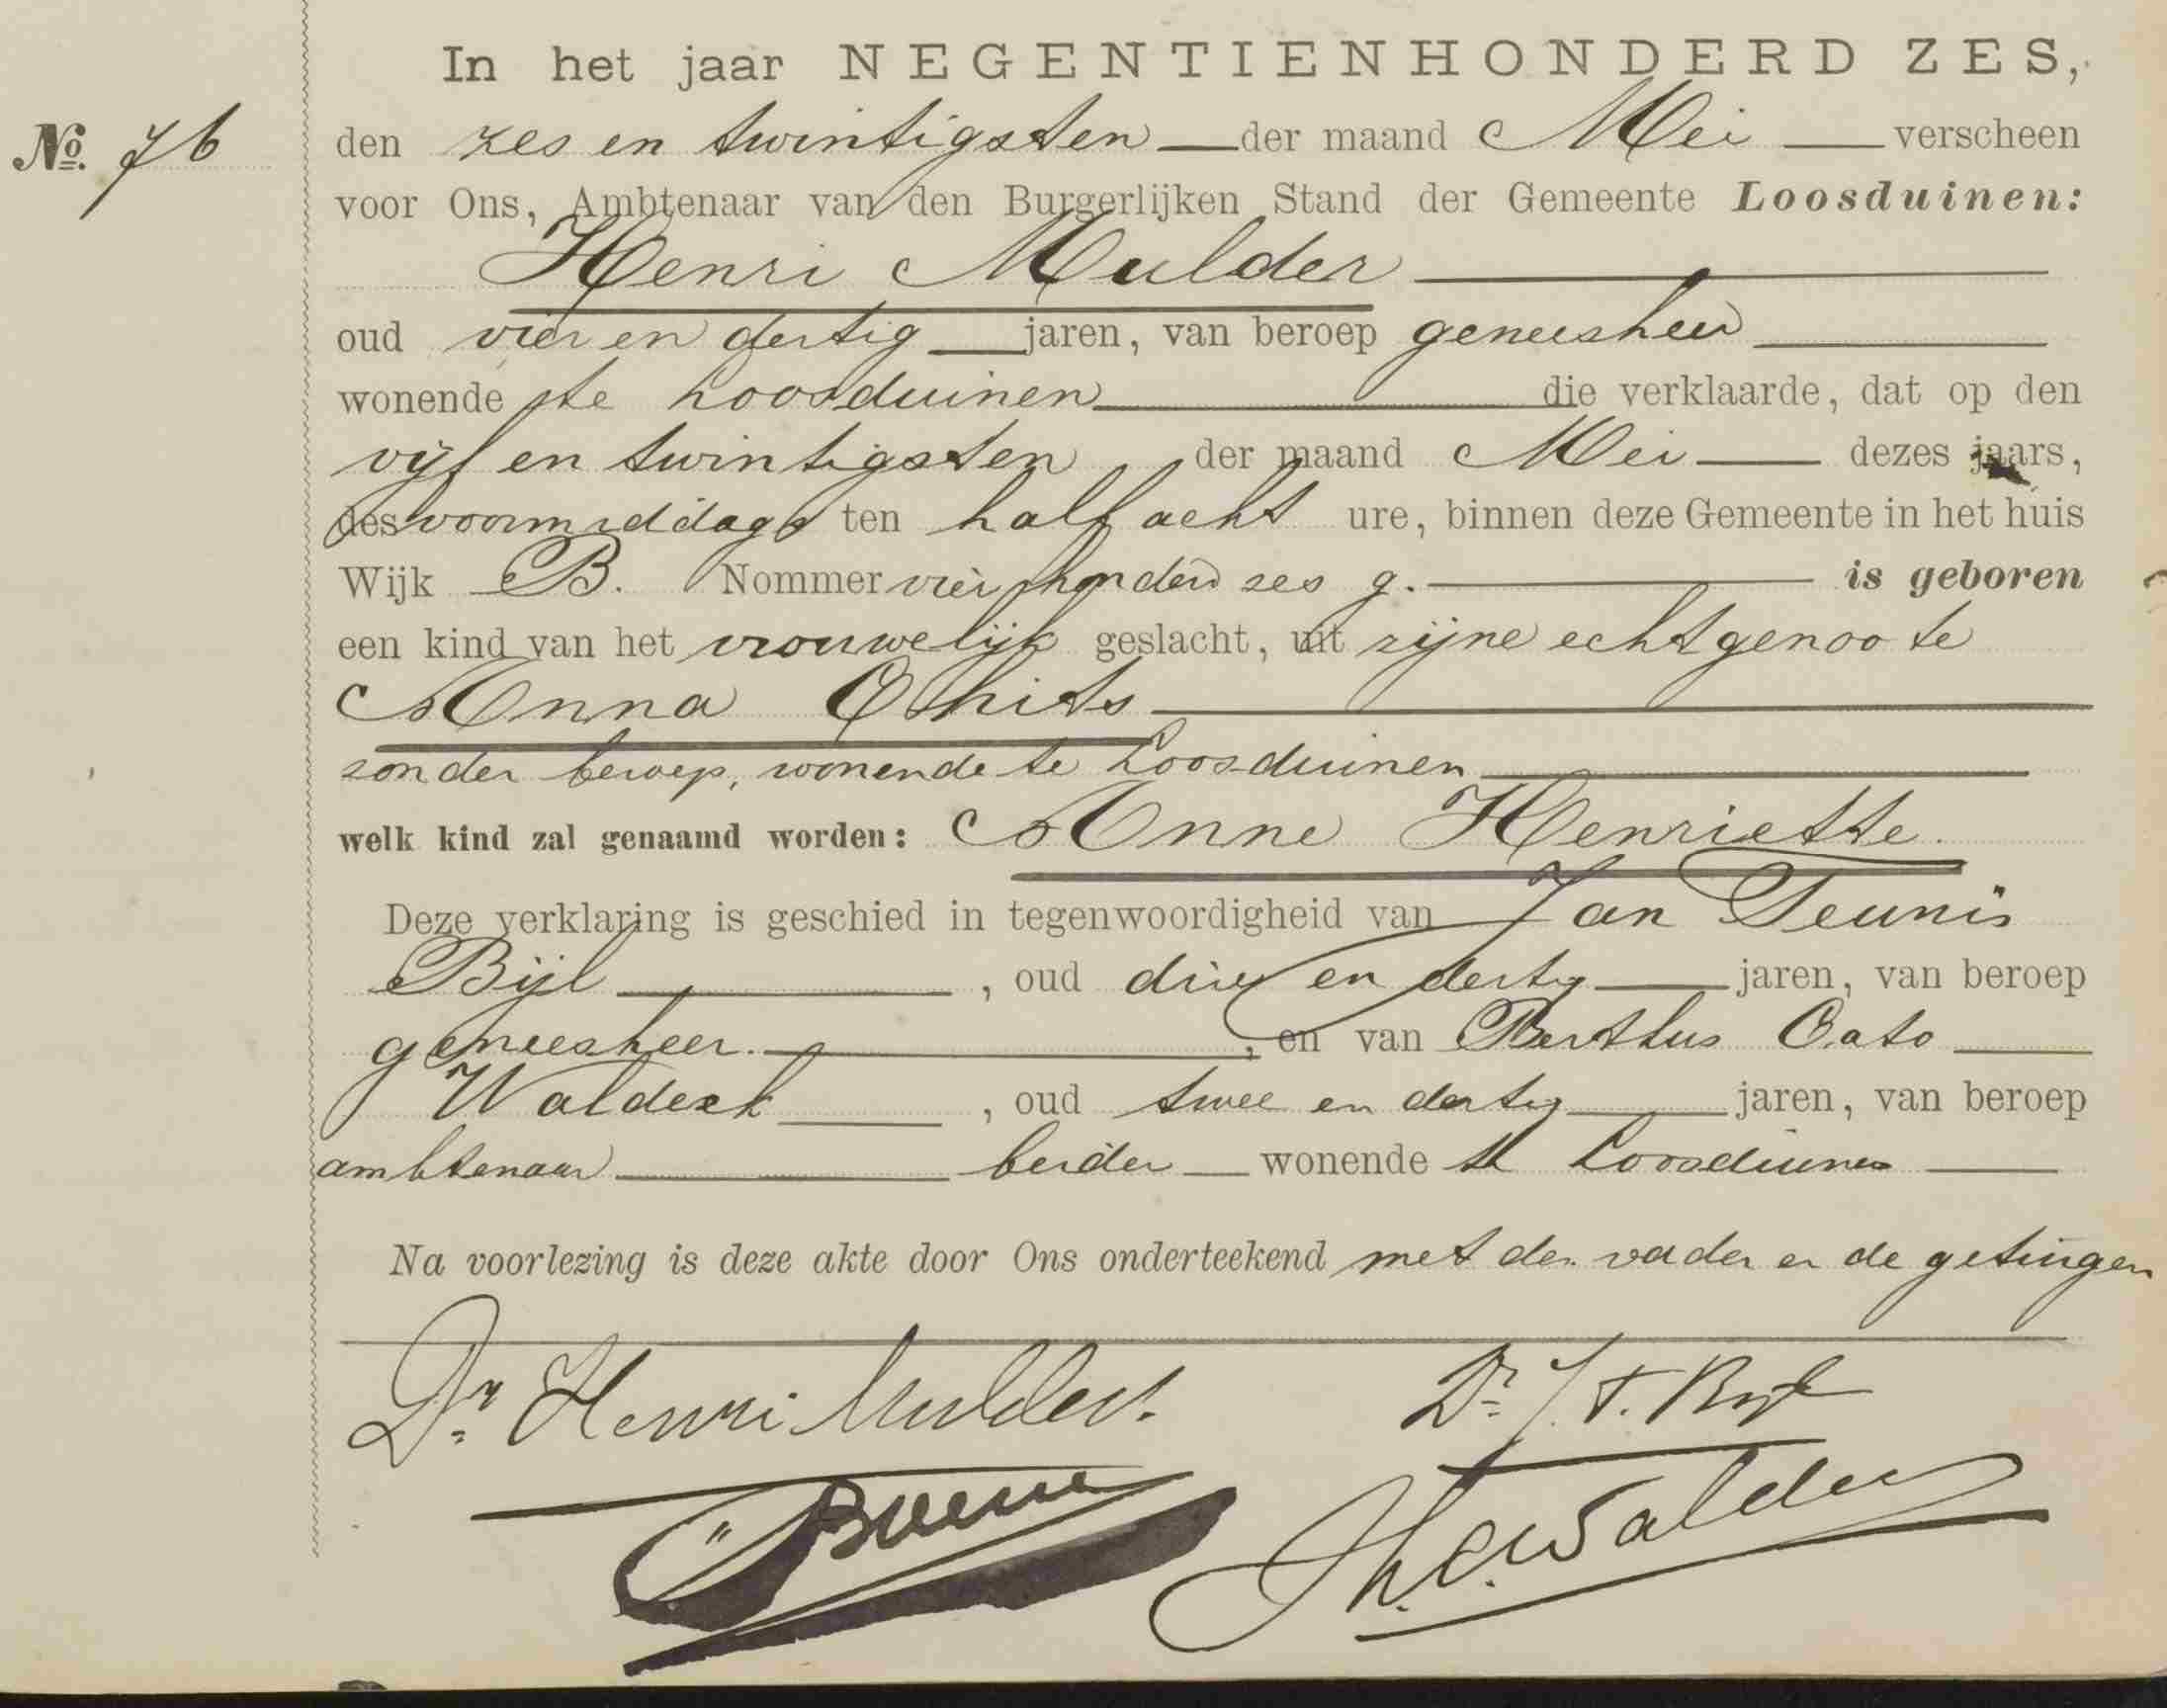 In het jaar NEGENTIENHONDERD ZES,
No. 76 den zes en twintigsten der maand Mei verscheen
voor Ons, Ambtenaar van den Burgerlijken Stand der Gemeente Loosduinen:
Henri Mulder
oud vier en dertig jaren, van beroep geneesheer
wonende te Loosduinen die verklaarde, dat op den
vijf en twintigsten der maand Mei dezes jaars,
des voormiddags ten half acht ure, binnen deze Gemeente in het huis
Wijk B. Nommer vier honderd zes g. is geboren
een kind van het vrouwelijk geslacht, uit zijne echtgenoote
Anna
zonder beroep, wonende te Loosduinen
welk kind zal genaamd worden: Anne Henriette.
Deze verklaring is geschied in tegenwoordigheid van Jan Teunis
Bijl, oud drie en dertig jaren, van beroep
geneesheer., en van Cato
Waldeck, oud twee en dertig jaren, van beroep
ambtenaar beiden wonende te Loosduinen
Na voorlezing is deze akte door Ons onderteekend met den vader en de getuigen
Dr. Henri Mulder. Dr. J. T. Bijl